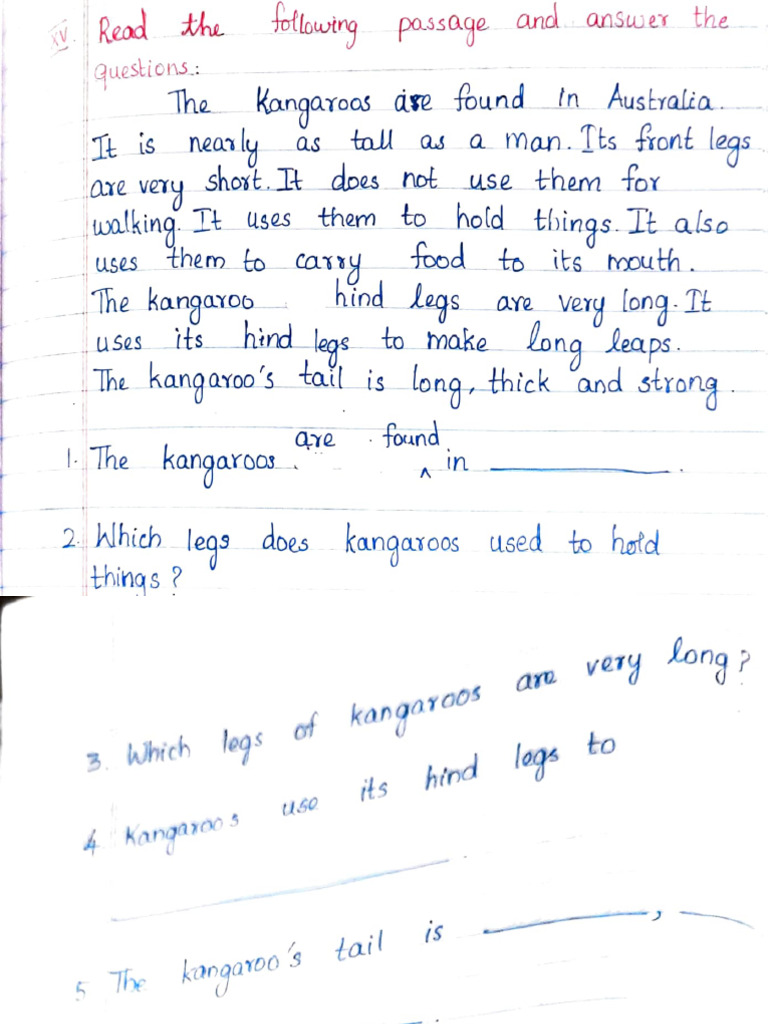 XV. Read the following passage and answer the
questions:
The Kangaroos are found in Australia.
It is nearly as tall as a man. Its front legs
are very short. It does not use them for
walking. It uses them to hold things. It also
uses them to carry food to its mouth.
The kangaroo hind legs are very long. It
uses its hind legs to make long leaps.
The kangaroo's tail is long, thick and strong.
are found
1. The kangaroos ^ in ________.
2. Which legs does kangaroos used to hold
things?
3. Which legs of kangaroos are very long?
4 Kangaroos use its hind legs to
________
5 The kangaroo's tail is ________, ____